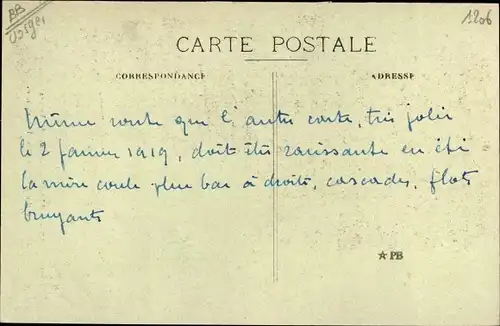 BB
Vosges
1206
CARTE POSTALE
CORRESPONDANCE
ADRESSE
Même route que l'autre carte, très jolie
le 2 Janvier 1919, doit être ravissante en été
la mère coule plus bas à droite, cascades, flots
bruyants
☆PB